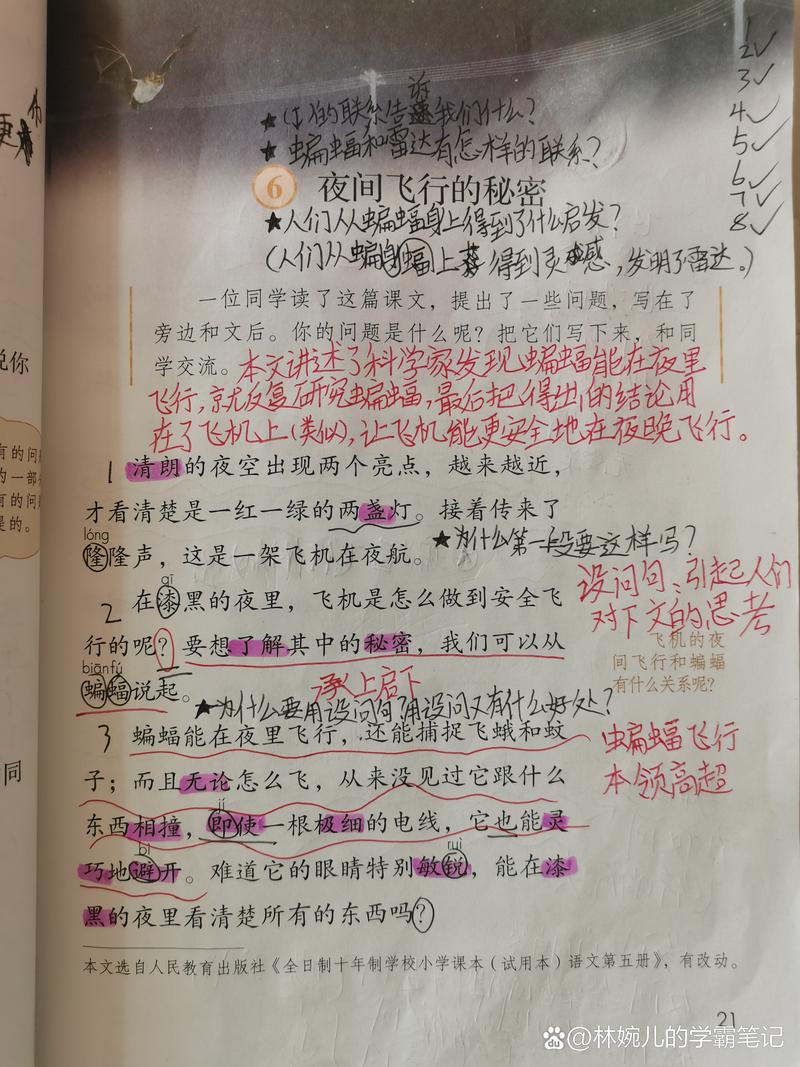 1
2✓
3✓
4✓
5✓
6✓
7✓
8✓
★(它)的联系告诉我们什么?
★蝙蝠和雷达有怎样的联系?
6 夜间飞行的秘密
★人们从蝙蝠身上得到了什么启发?
(人们从蝙蝠身上得到灵感,发明了雷达。)
一位同学读了这篇课文,提出了一些问题,写在了
旁边和文后。你的问题是什么呢?把它们写下来,和同
学交流。
本文讲述了科学家发现蝙蝠能在夜里
飞行,就反复研究蝙蝠,最后把得出的结论用
在了飞机上(类似),让飞机能更安全地在夜晚飞行。
1 清朗的夜空出现两个亮点,越来越近,
才看清楚是一红一绿的两盏灯。接着传来了
lóng
隆隆声,这是一架飞机在夜航。
★为什么第一段要这样写?
qī
2 在漆黑的夜里,飞机是怎么做到安全飞
行的呢?要想了解其中的秘密,我们可以从
biānfú
蝙蝠说起。
设问句、引起人们
对下文的思考
飞机的夜
间飞行和蝙蝠
有什么关系呢?
承上启下
★为什么要用设问句?用设问又有什么好处?
3 蝙蝠能在夜里飞行,还能捕捉飞蛾和蚊
子;而且无论怎么飞,从来没见过它跟什么
jí
东西相撞,即使一根极细的电线,它也能灵
bì
ruì
巧地避开。难道它的眼睛特别敏锐,能在漆
黑的夜里看清楚所有的东西吗?
蝙蝠飞行
本领高超
本文选自人民教育出版社《全日制十年制学校小学课本(试用本)语文第五册》,有改动。
21
说你
有的问
的一部
有的问
是的。
同
Bai du @林婉儿的学霸笔记